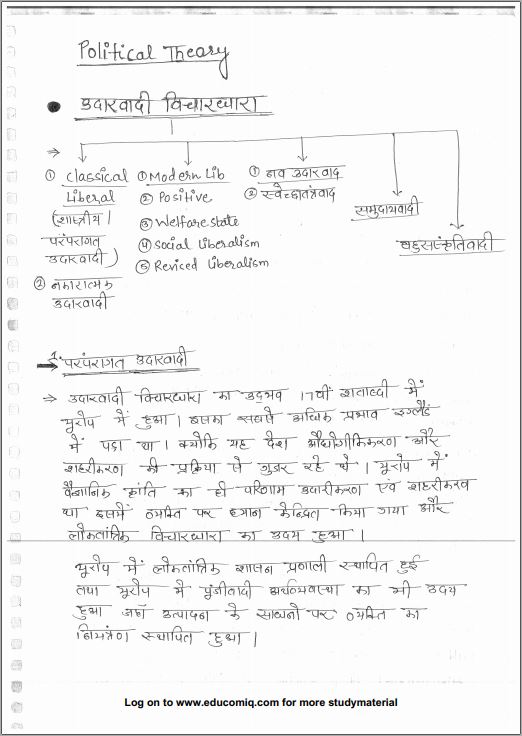 Political Theory
● उदारवादी विचारधारा
⇒
① Classical
Liberal
(शास्त्रीय /
परंपरागत
उदारवादी)
② नकारात्मक
उदारवादी
① Modern Lib
② Positive
③ Welfare state
④ Social liberalism
⑤ Reviced liberalism
① नव उदारवाद
② स्वेच्छातंत्रवाद
समुदायवादी
बहुसंस्कृतिवादी
1. परंपरागत उदारवादी
⇒ उदारवादी विचारधारा का उद्‌भव 17वीं शताब्दी में
यूरोप में हुआ। इसका सबसे अधिक प्रभाव इंग्लैंड
में पड़ा था। क्योंकि यह देश औद्योगीकिकरण और
शहरीकरण की प्रक्रिया से गुजर रहे थे। यूरोप में
वैज्ञानिक क्रांति का ही परिणाम उदारीकरण एवं शहरीकरण
था इसमें व्यक्ति पर ध्यान केन्द्रित किया गया और
लोकतांत्रिक विचारधारा का उदय हुआ।
यूरोप में लोकतांत्रिक शासन प्रणाली स्थापित हुई
तथा यूरोप में पूंजीवादी अर्थव्यवस्था का भी उदय
हुआ जहाँ उत्पादन के साधनों पर व्यक्ति का
नियंत्रण स्थापित हुआ।
Log on to www.educomiq.com for more studymaterial